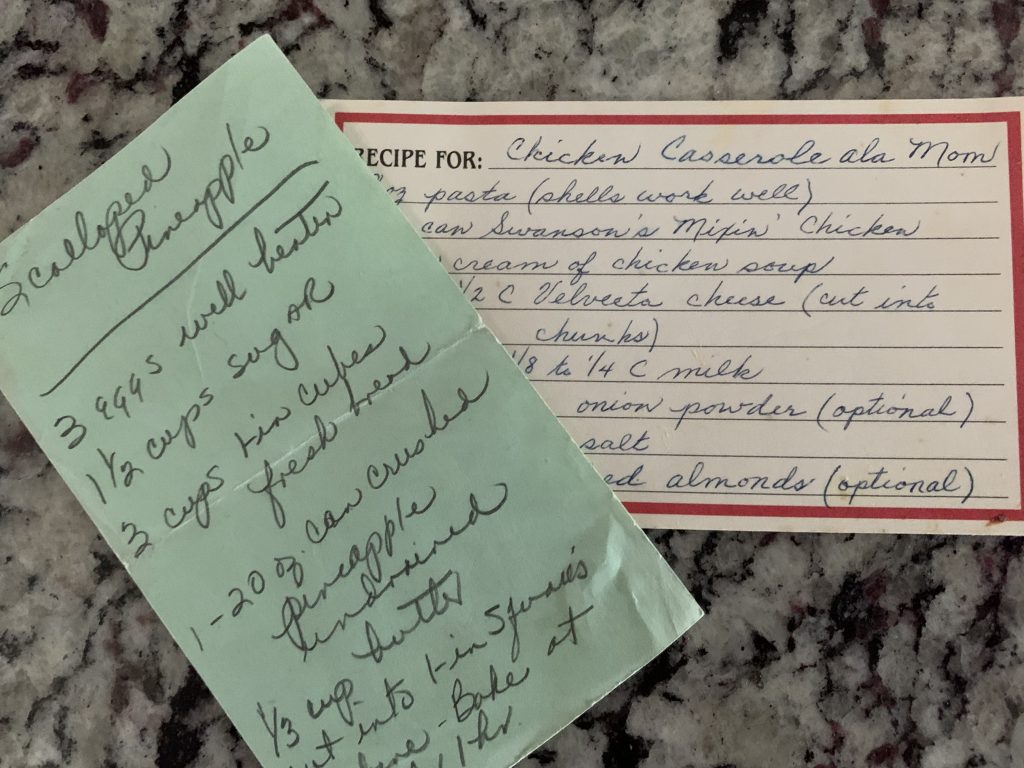 Scalloped
Pineapple
3 eggs well beaten
1 1/2 cups sugAR
3 cups 1-in cubes
fresh bread
1-20 oz can crushed
pineapple
undrained
1/3 cup butter
into 1-in squares
Bake at
1 hr
RECIPE FOR: Chicken Casserole ala Mom
oz pasta (shells work well)
can Swanson's Mixin' Chicken
cream of chicken soup
1/2 C Velveeta cheese (cut into
chunks)
1/8 to 1/4 C milk
onion powder (optional)
salt
ed almonds (optional)